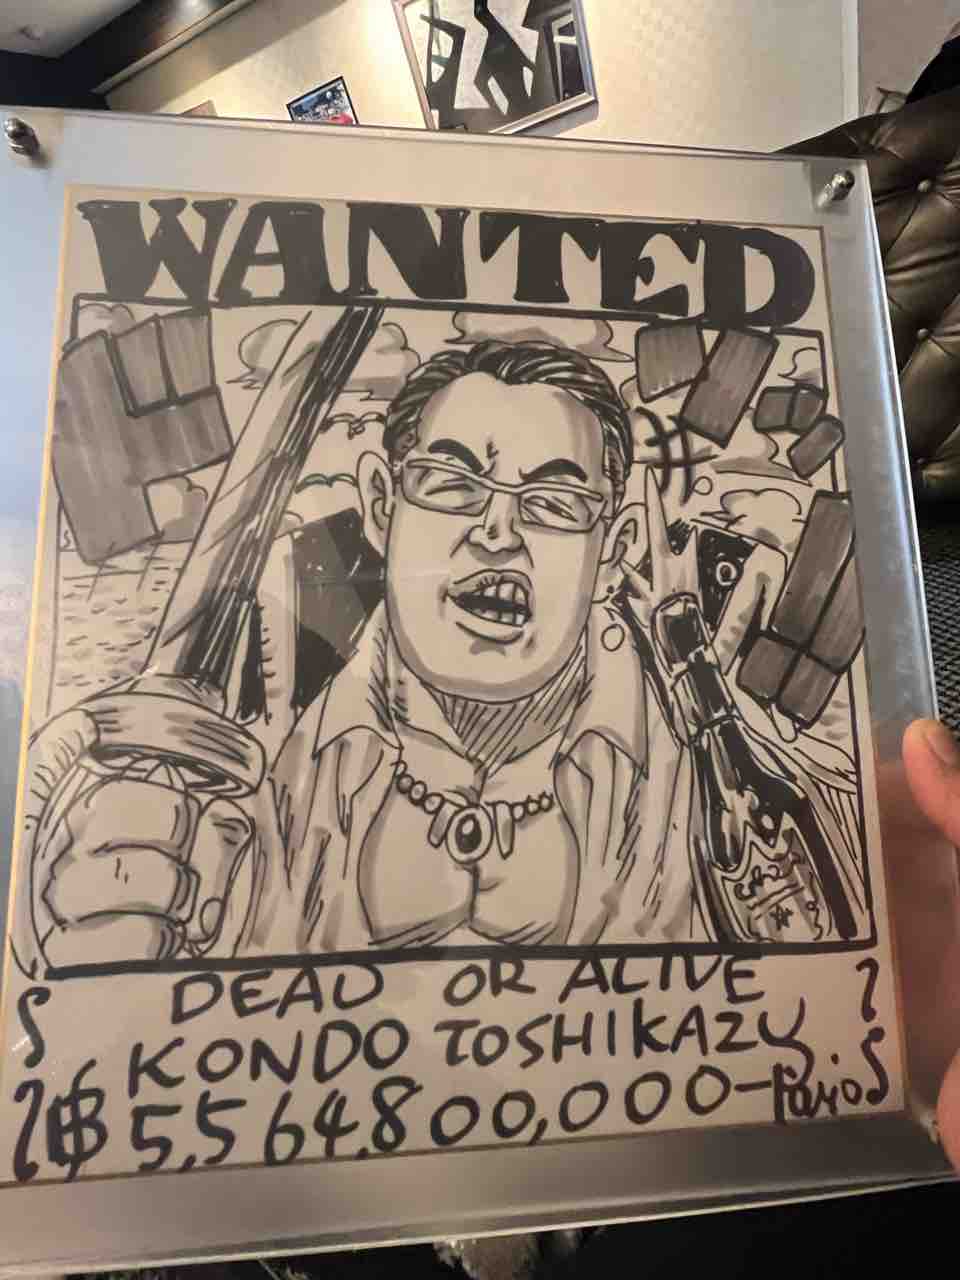 WANTED
DEAD OR ALIVE
KONDO TOSHIKAZU.
฿5,564,800,000-